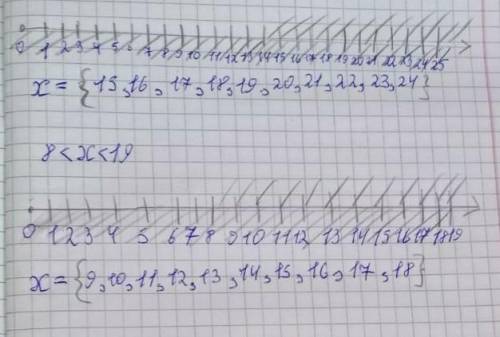 0 1 2 3 4 5 6 7 8 9 10 11 12 13 14 15 16 17 18 19 20 21 22 23 24 25
x = {15, 16, 17, 18, 19, 20, 21, 22, 23, 24}
8 < x < 19
0 1 2 3 4 5 6 7 8 9 10 11 12 13 14 15 16 17 18 19
x = {9, 10, 11, 12, 13, 14, 15, 16, 17, 18}